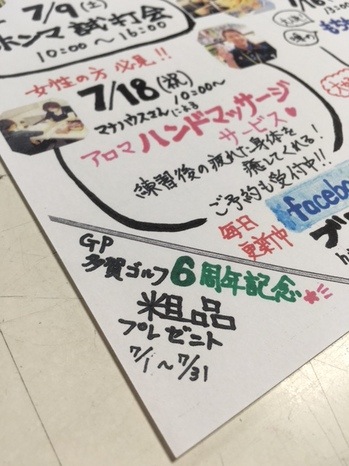 7/9(土)
ホンマ 試打会
10:00～16:00
女性の方 必見!!
7/18(祝)
10:00～
マナハウスさんによる
アロマハンドマッサージ
サービス♥
練習後の疲れた身体を
癒してくれる!
ご予約も受付中!!
毎日
更新中
facebo
GP
多賀ゴルフ6周年記念
粗品
プレゼント
7/1～7/31